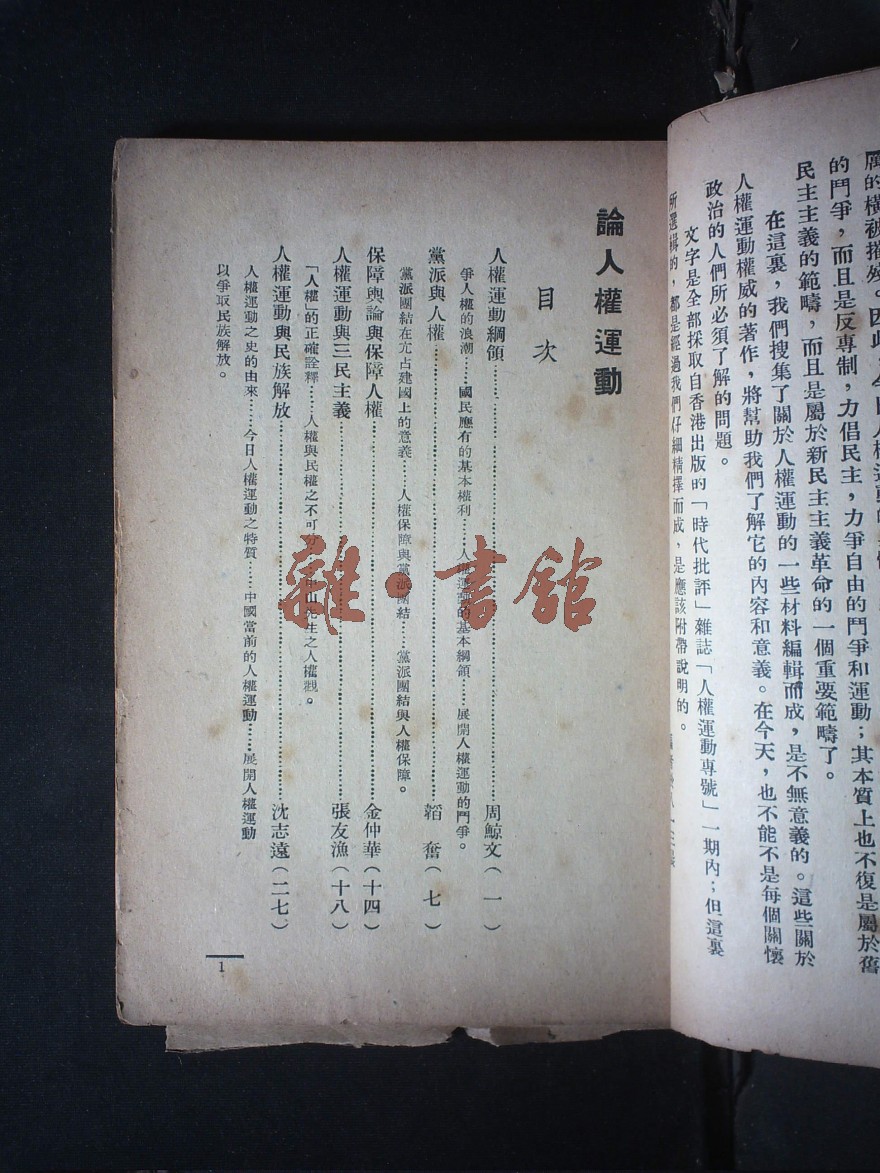 厲的橫被摧殘。因此，今日人權運動的
的鬥爭，而且是反專制，力倡民主，力爭自由的鬥爭和運動；其本質上也不復是屬於舊
民主主義的範疇，而且是屬於新民主主義革命的一個重要範疇了。
在這裏，我們搜集了關於人權運動的一些材料編輯而成，是不無意義的。這些關於
人權運動權威的著作，將幫助我們了解它的內容和意義。在今天，也不能不是每個關懷
政治的人們所必須了解的問題。
文字是全部採取自香港出版的「時代批評」雜誌「人權運動專號」一期內；但這裏
所選輯的，都是經過我們仔細精擇而成，是應該附帶說明的。
論人權運動
目次
人權運動綱領……周鯨文（一）
爭人權的浪潮……國民應有的基本權利……人權運動的基本綱領……展開人權運動的鬥爭。
黨派與人權……韜奮（七）
黨派團結在亢占建國上的意義……人權保障與黨派團結……黨派團結與人權保障。
保障輿論與保障人權……金仲華（十四）
人權運動與三民主義……張友漁（十八）
「人權」的正確詮釋……人權與民權之不可分……中山先生之人權觀。
人權運動與民族解放……沈志遠（二七）
人權運動之史的由來……今日人權運動之特質……中國當前的人權運動……展開人權運動
以爭取民族解放。
1
雜·書館